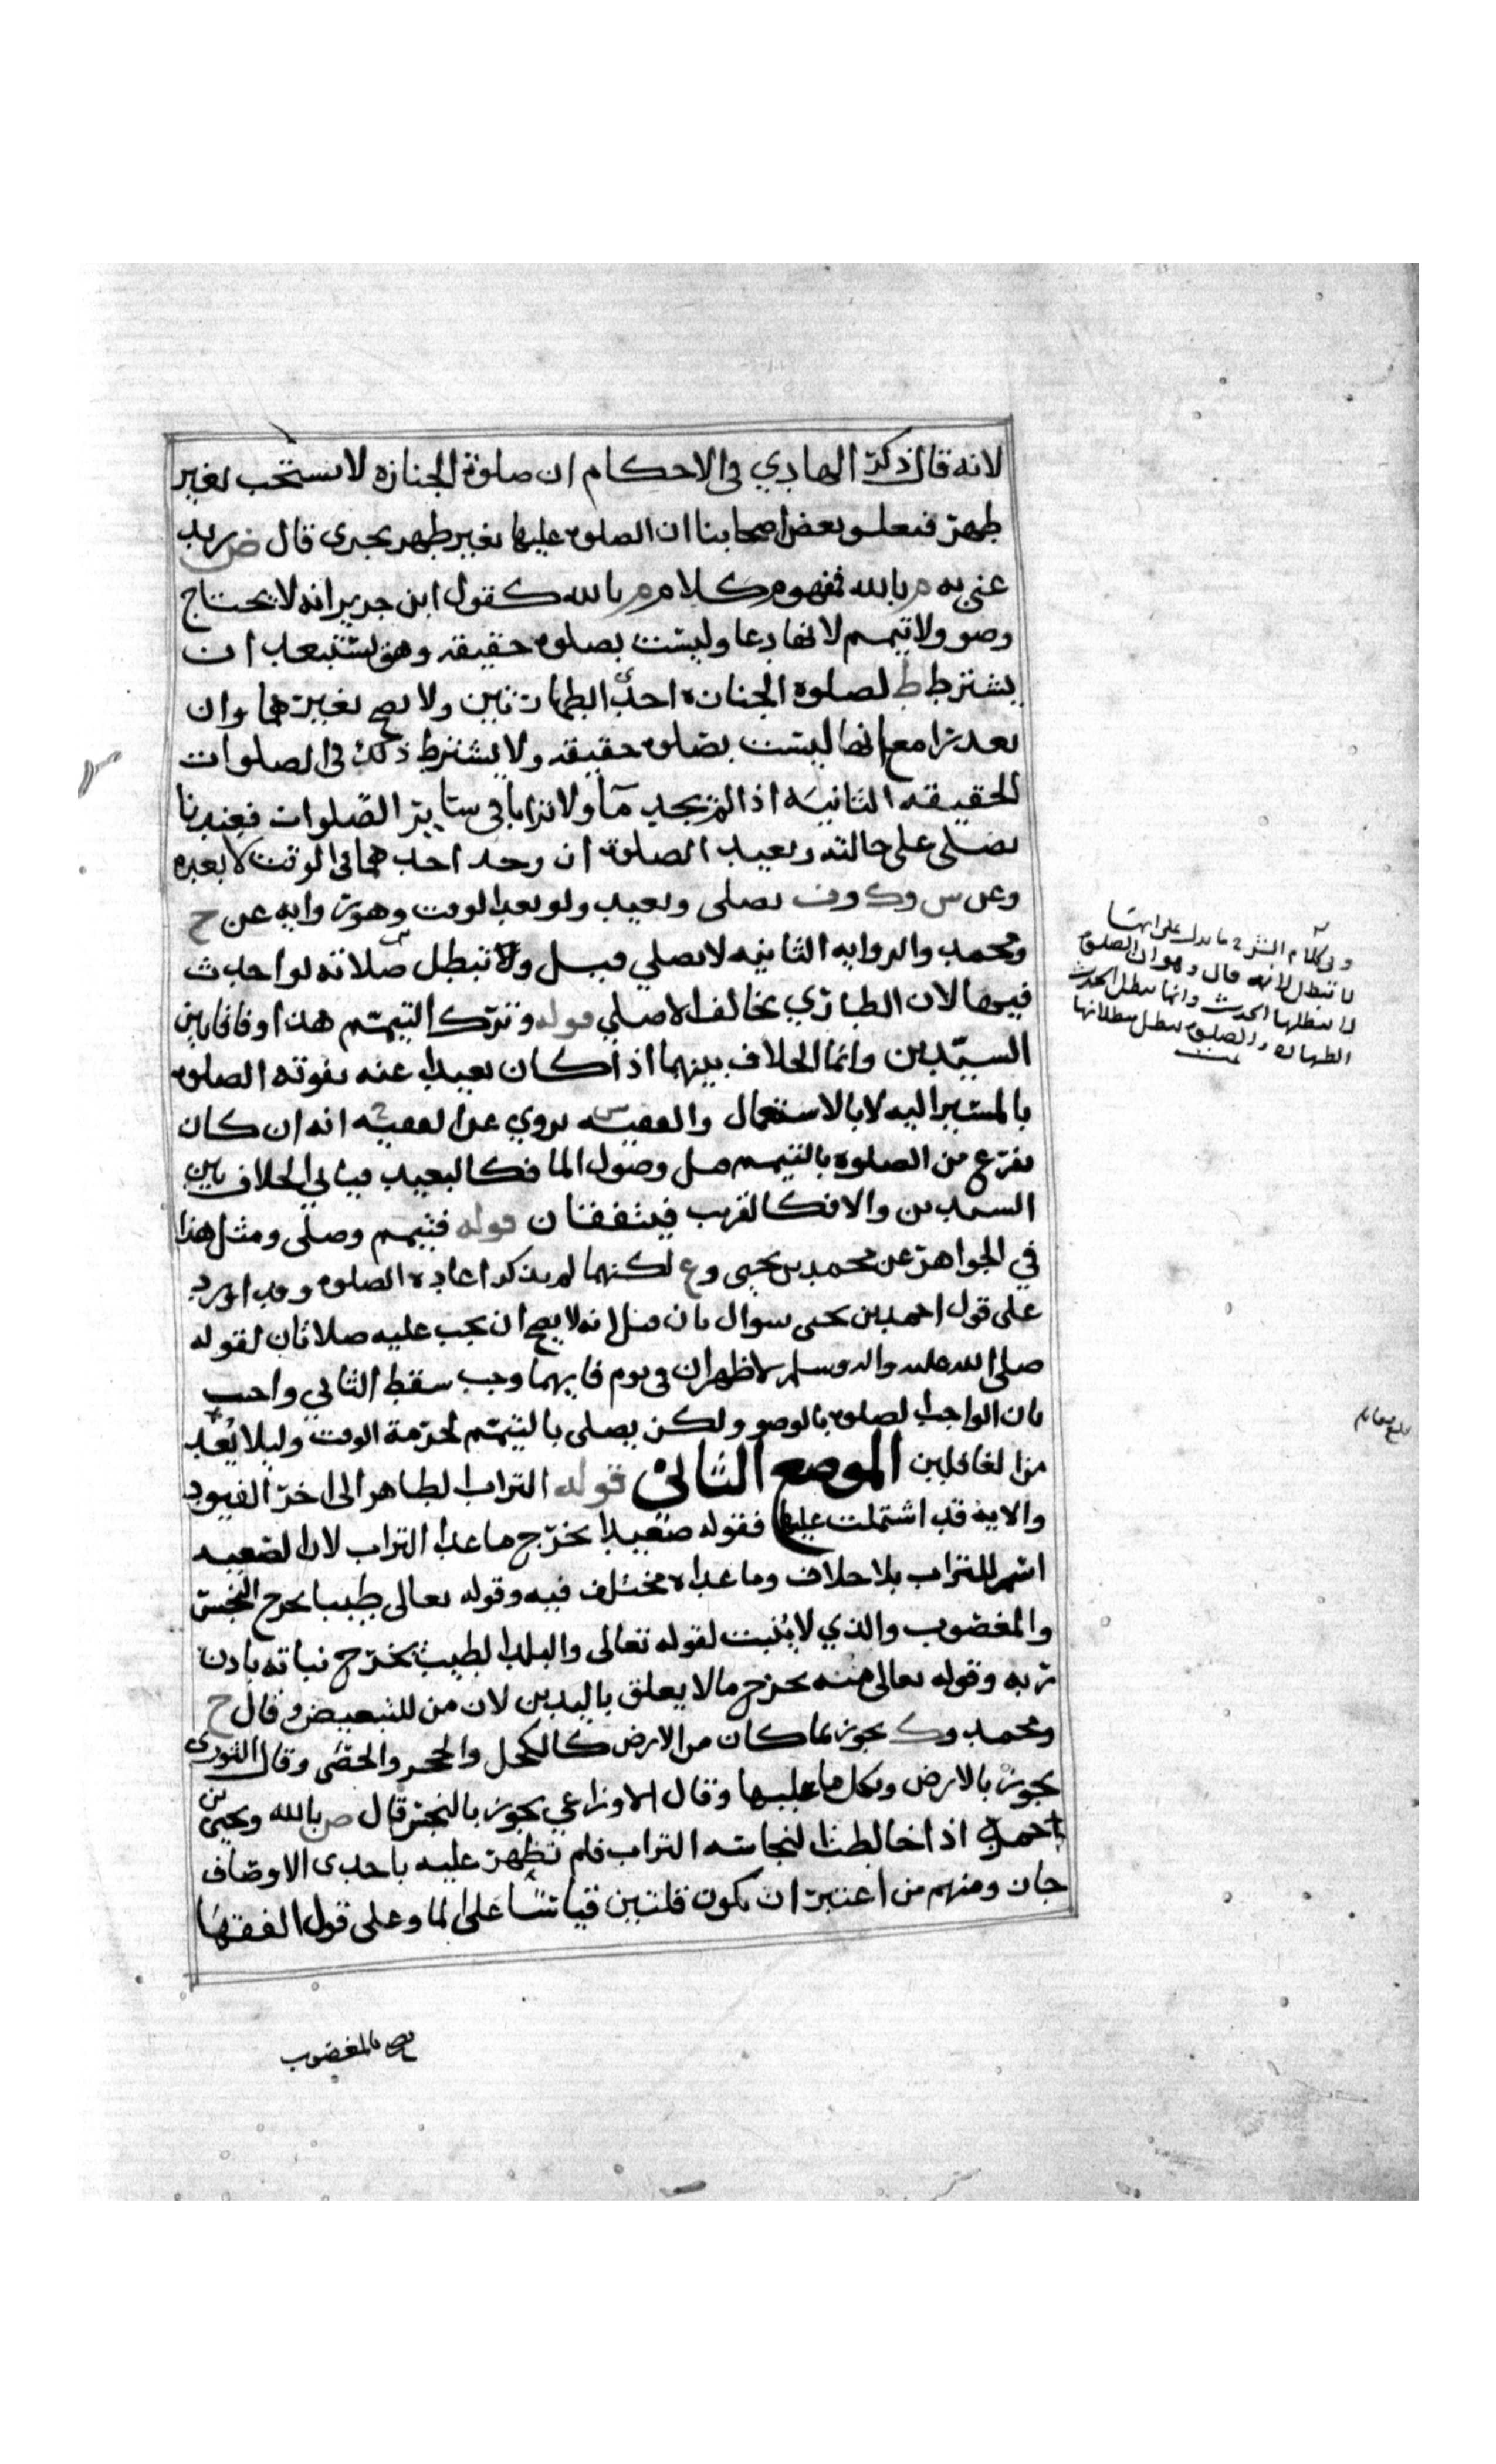 لانه قال ذكر الهادي في الاحكام ان صلوة الجنازه لا تستحب بغير
طهر فتعلق بعض اصحابنا ان الصلوه عليها بغير طهر يجزي قال ض زيد
عنى به م بالله فمفهوم كلام م بالله كقول ابن جرير انه لا يحتاج
وضو ولا تيمم لانها دعا وليست بصلوه حقيقه وهو يستبعد ان
يشترط ط لصلوه الجنازه احدى الطهارتين ولا يصح بغيرهما وان
بعد ترا مع انها ليست بصلوه حقيقه ولا يشترط ذلك في الصلوات
الحقيقه الثانيه اذا لم يجد مآ ولا ترابا في ساير الصلوات فعندنا
يصلي على حالته ويعيد الصلوة ان وجد احدهما في الوقت لا بعده
وعن س وك وف يصلي ويعيد ولو بعد الوقت وهو روايه عن ح
ومحمد والروايه الثانيه لا يصلي قيل ولا تبطل صلاته لو احدث
فيها لان الطاري مخالف الاصلي قوله وترك التيمم هذا وفاقا بين
السيدين وانما الخلاف بينهما اذا كان بعيدا عنه تفوته الصلوه
بالمسير اليه لا بالاستعمال والفقيه س يروي عن الفقيه ح انه ان كان
يفرغ من الصلوه بالتيمم قبل وصول الما فكالبعيد فياتي الخلاف بين
السيدين والا فكالقريب فيتفقان قوله فتيمم وصلى ومثل هذا
في الجواهر عن محمد بن يحيى وع لكنهما لم يذكرا اعاده الصلوه وقد اورد
على قول احمد بن يحيى سوال بان قيل انه لا يصح ان يجب عليه صلاتان لقوله
صلى الله عليه واله وسلم لا ظهران في يوم فايهما وجب سقط الثاني واجيب
بان الواجب الصلوه بالوضو ولكن يصلي بالتيمم لحرمة الوقت وليلا يُعد
من الغافلين الموضع الثاني قوله التراب الطاهر الى اخر القيود
والايه قد اشتملت عليها فقوله صعيدا يخرج ما عدا التراب لان الصعيد
اسم للتراب بلا خلاف وما عداه مختلف فيه وقوله تعالى طيبا يخرج النجس
والمغصوب والذي لا يُنبت لقوله تعالى والبلد الطيب يخرج نباته باذن
ربه وقوله تعالى منه يخرج ما لا يعلق باليدين لان من للتبعيض وقال ح
ومحمد وك يجوز بما كان من الارض كالكحل والحجر والحصى وقال الثوري
يجوز بالارض وبكل ما عليها وقال الاوزاعي يجوز بالنجس قال ص بالله ويحيى بن
احمد اذا خالطت النجاسه التراب فلم تظهر عليه باحدى الاوصاف
جاز ومنهم من اعتبر ان يكون قلتين قياسًا على الما وعلى قول الفقها
يصح بالمغصوب
وفي كلام الشرح ما يدل على انها
لا تبطل لانه قال وهو ان الصلوه
لا يبطلها الحدث وانما يبطل الحدث
الطهاره والصلوه تبطل ببطلانها
تمت